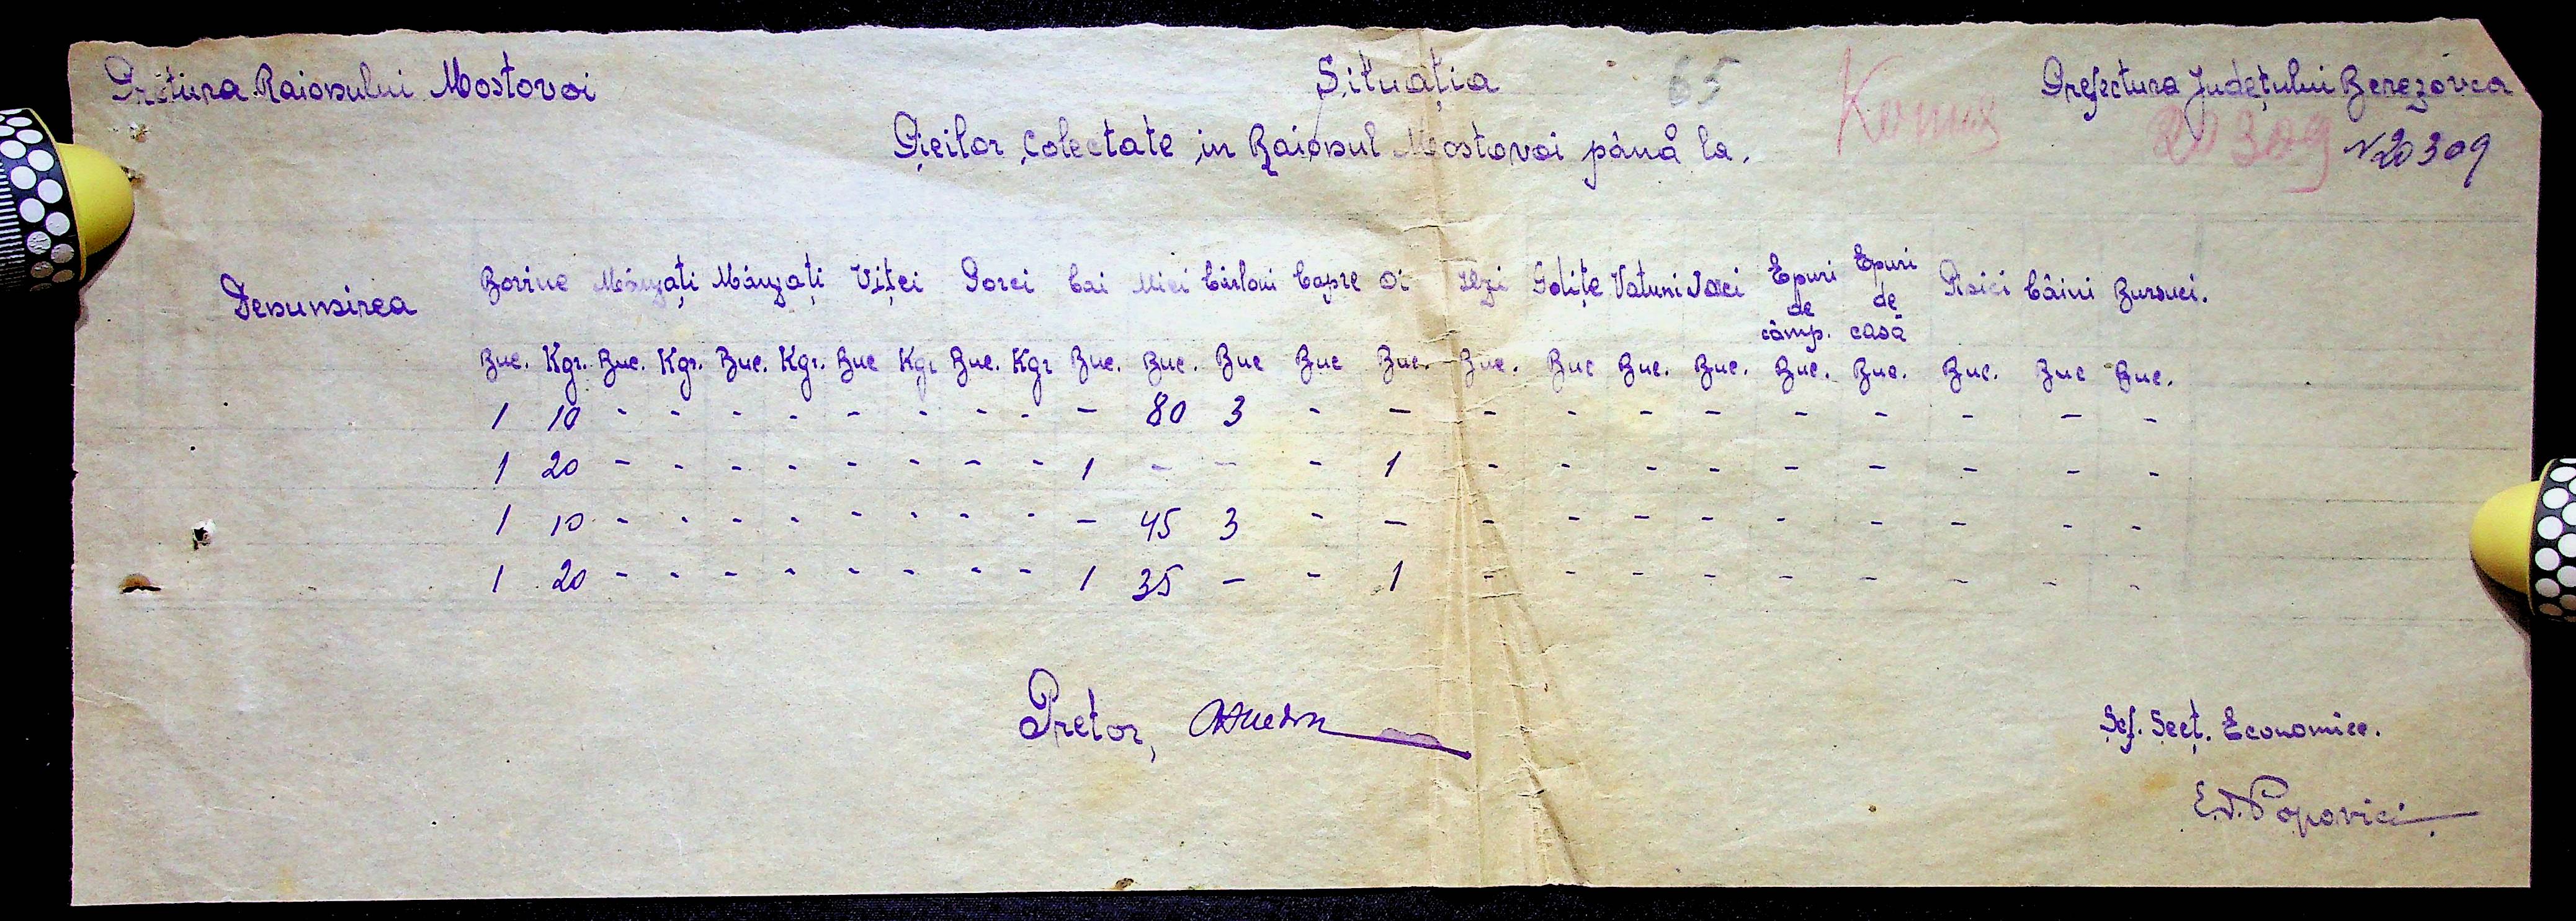 Pretura Raionului Mostovoi
Situația
65
Prefectura Județului Berezovca
Pieilor Colectate in Raionul Mostovoi până la.
20309
N 20309
Denumirea Bovine Mânzați Mânzați Viței Porci Cai Miei Cârlani Capre Oi Iezi Godițe Vatuni Iaci Epuri de câmp. Epuri de casă Pisici Câini Bursuci.
Buc. Kgr. Buc. Kgr. Buc. Kgr. Buc Kgr Buc. Kgr Buc. Buc. Buc Buc Buc. Buc. Buc Buc. Buc. Buc. Buc. Buc. Buc Buc.
1 10 - - - - - - - - - 80 3 - - - - - - - - - - -
1 20 - - - - - - - - 1 - - - 1 - - - - - - - - -
1 10 - - - - - - - - - 45 3 - - - - - - - - - - -
1 20 - - - - - - - - 1 35 - - 1 - - - - - - - - -
Pretor,
Șef. Secț. Economice.
E.D. Popovici